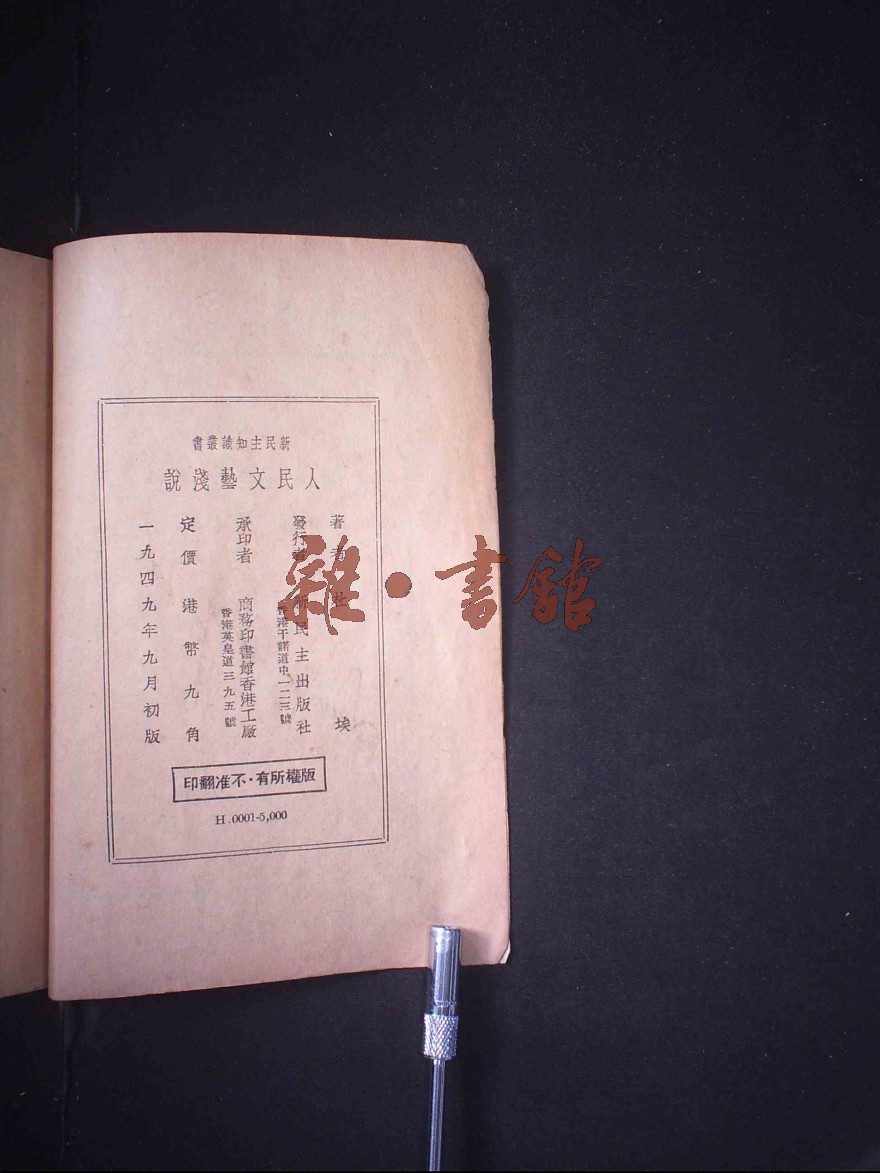 新民主知識叢書
人民文藝淺說
著者 杜埃
發行者 新民主出版社
香港干諾道中一二三號
承印者 商務印書館香港工廠
香港英皇道三九五號
定價港幣九角
一九四九年九月初版
版權所有·不准翻印
H.0001-5,000
雜·書館